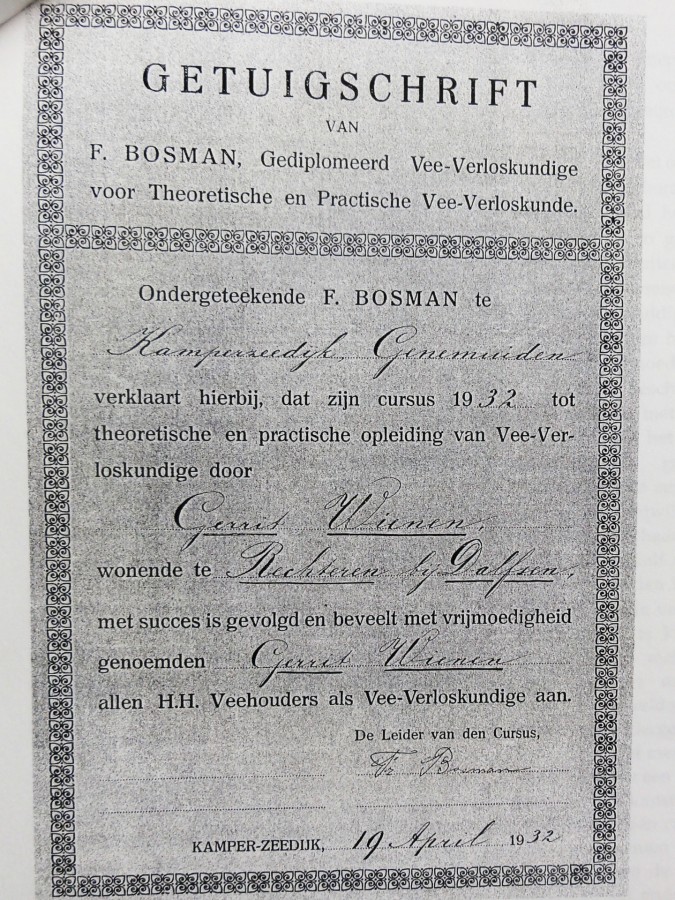 GETUIGSCHRIFT
VAN
F. BOSMAN, Gediplomeerd Vee-Verloskundige
voor Theoretische en Practische Vee-Verloskunde.
Ondergeteekende F. BOSMAN te
Kamperzeedijk, Genemuiden
verklaart hierbij, dat zijn cursus 1932 tot
theoretische en practische opleiding van Vee-Ver-
loskundige door
Gerrit Wienen,
wonende te Rechteren bij Dalfsen,
met succes is gevolgd en beveelt met vrijmoedigheid
genoemden Gerrit Wienen
allen H.H. Veehouders als Vee-Verloskundige aan.
De Leider van den Cursus,
Fr Bosman
KAMPER-ZEEDIJK, 19 April 1932